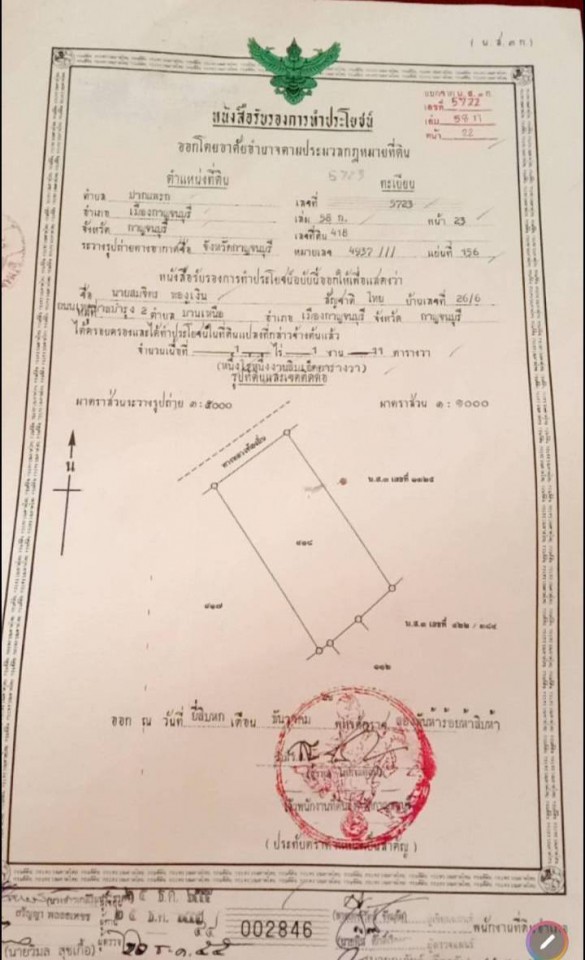 ( น.ส.๓ ก.)
แยกจาก น.ส.๓ ก.
เลขที่ 5722
เล่ม 58 ก
หน้า 22
หนังสือรับรองการทำประโยชน์
ออกโดยอาศัยอำนาจตามประมวลกฎหมายที่ดิน
ตำแหน่งที่ดิน 5723 ทะเบียน
ตำบล ปากแพรก เลขที่ 5723
อำเภอ เมืองกาญจนบุรี เล่ม 58 ก. หน้า 23
จังหวัด กาญจนบุรี เลขที่ดิน 418
ระวางรูปถ่ายทางอากาศชื่อ จังหวัดกาญจนบุรี หมายเลข 4937 /// แผ่นที่ 156
หนังสือรับรองการทำประโยชน์ฉบับนี้ออกให้เพื่อแสดงว่า
ชื่อ นายสมจิตร ทองเงิน สัญชาติ ไทย บ้านเลขที่ 26/6
ถนน หมู่ที่ 2 ตำบล บ้านเหนือ อำเภอ เมืองกาญจนบุรี จังหวัด กาญจนบุรี
ได้ครอบครองและได้ทำประโยชน์ในที่ดินแปลงที่กล่าวข้างต้นแล้ว
จำนวนเนื้อที่ 1 ไร่ 1 งาน 11 ตารางวา
(หนึ่งไร่หนึ่งงานสิบเอ็ดตารางวา)
รูปที่ดินและเขตติดต่อ
มาตราส่วนระวางรูปถ่าย ๑:๕๐๐๐ มาตราส่วน ๑:๑๐๐๐
น
ทางหลวงท้องถิ่น
น.ส.๓ เลขที่ ๑๑๒๕
๔๑๘
๔๑๗
น.ส.๓ เลขที่ ๔๒๒ / ๓๘๔
๑๑๒
ออก ณ วันที่ ยี่สิบหก เดือน ธันวาคม พุทธศักราช สองพันห้าร้อยห้าสิบห้า
เจ้าพนักงานที่ดิน
( ประทับตราตำแหน่งเป็นสำคัญ )
๒๕ ธ.ค. ๒๕๕๕
002846
พนักงานที่ดินอำเภอ
(นายวิมล สุขเกื้อ)